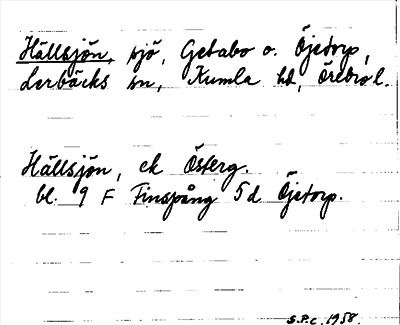 Hällsjön, sjö, Getabo o. Öjetorp,
Lerbäcks sn, Kumla hd, Örebro l.
Hällsjön, ek Österg.
bl. 9 F Finspång 5d Öjetorp.
S.P.C. 1958.